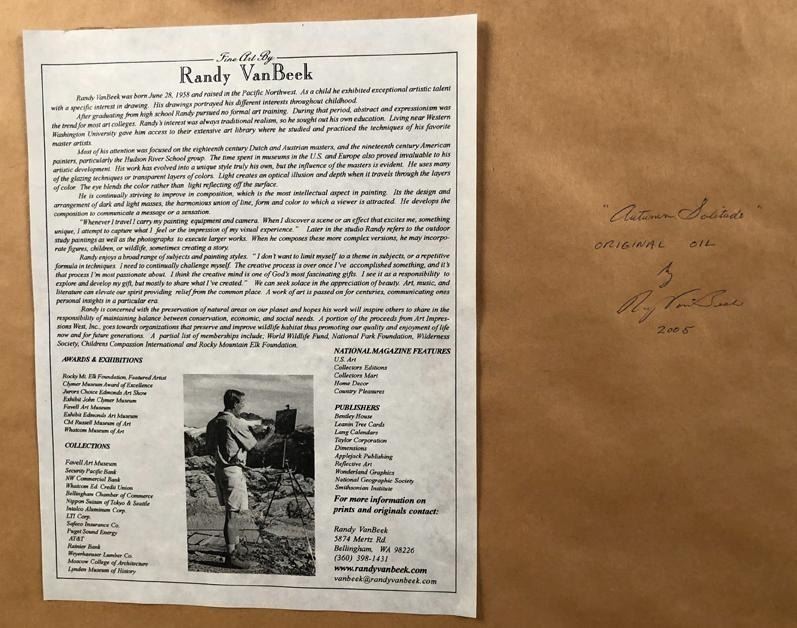 Fine Art By
Randy VanBeek
Randy VanBeek was born June 28, 1958 and raised in the Pacific Northwest. As a child he exhibited exceptional artistic talent
with a specific interest in drawing. His drawings portrayed his different interests throughout childhood.
After graduating from high school Randy pursued no formal art training. During that period, abstract and expressionism was
the trend for most art colleges. Randy's interest was always traditional realism, so he sought out his own education. Living near Western
Washington University gave him access to their extensive art library where he studied and practiced the techniques of his favorite
master artists.
Most of his attention was focused on the eighteenth century Dutch and Austrian masters, and the nineteenth century American
painters, particularly the Hudson River School group. The time spent in museums in the U.S. and Europe also proved invaluable to his
artistic development. His work has evolved into a unique style truly his own, but the influence of the masters is evident. He uses many
of the glazing techniques or transparent layers of colors. Light creates an optical illusion and depth when it travels through the layers
of color. The eye blends the color rather than light reflecting off the surface.
He is continually striving to improve in composition, which is the most intellectual aspect in painting. Its the design and
arrangement of dark and light masses, the harmonious union of line, form and color to which a viewer is attracted. He develops the
composition to communicate a message or a sensation.
"Whenever I travel I carry my painting equipment and camera. When I discover a scene or an effect that excites me, something
unique, I attempt to capture what I feel or the impression of my visual experience." Later in the studio Randy refers to the outdoor
study paintings as well as the photographs to execute larger works. When he composes these more complex versions, he may incorpo-
rate figures, children, or wildlife, sometimes creating a story.
Randy enjoys a broad range of subjects and painting styles. "I don't want to limit myself to a theme in subjects, or a repetitive
formula in techniques. I need to continually challenge myself. The creative process is over once I've accomplished something, and it's
that process I'm most passionate about. I think the creative mind is one of God's most fascinating gifts. I see it as a responsibility to
explore and develop my gift, but mostly to share what I've created." We can seek solace in the appreciation of beauty. Art, music, and
literature can elevate our spirit providing relief from the common place. A work of art is passed on for centuries, communicating ones
personal insights in a particular era.
Randy is concerned with the preservation of natural areas on our planet and hopes his work will inspire others to share in the
responsibility of maintaining balance between conservation, economic, and social needs. A portion of the proceeds from Art Impres-
sions West, Inc., goes towards organizations that preserve and improve wildlife habitat thus promoting our quality and enjoyment of life
now and for future generations. A partial list of memberships include; World Wildlife Fund, National Park Foundation, Wilderness
Society, Childrens Compassion International and Rocky Mountain Elk Foundation.
AWARDS & EXHIBITIONS
Rocky Mt. Elk Foundation, Featured Artist
Clymer Museum Award of Excellence
Jurors Choice Edmonds Art Show
Exhibit John Clymer Museum
Favell Art Museum
Exhibit Edmonds Art Museum
CM Russell Museum of Art
Whatcom Museum of Art
COLLECTIONS
Favell Art Museum
Security Pacific Bank
NW Commercial Bank
Whatcom Ed. Credit Union
Bellingham Chamber of Commerce
Nippon Suisan of Tokyo & Seattle
Intalco Aluminum Corp.
LTI Corp.
Safeco Insurance Co.
Puget Sound Energy
AT&T
Rainier Bank
Weyerhaeuser Lumber Co.
Moscow College of Architecture
Lynden Museum of History
NATIONAL MAGAZINE FEATURES
U.S. Art
Collectors Editions
Collectors Mart
Home Decor
Country Pleasures
PUBLISHERS
Bentley House
Leanin Tree Cards
Lang Calendars
Taylor Corporation
Dimensions
Applejack Publishing
Reflective Art
Wonderland Graphics
National Geographic Society
Smithsonian Institute
For more information on
prints and originals contact:
Randy VanBeek
5874 Mertz Rd.
Bellingham, WA 98226
(360) 398-1431
www.randyvanbeek.com
vanbeek@randyvanbeek.com
"Autumn Solitude"
ORIGINAL OIL
by
Randy VanBeek
2005